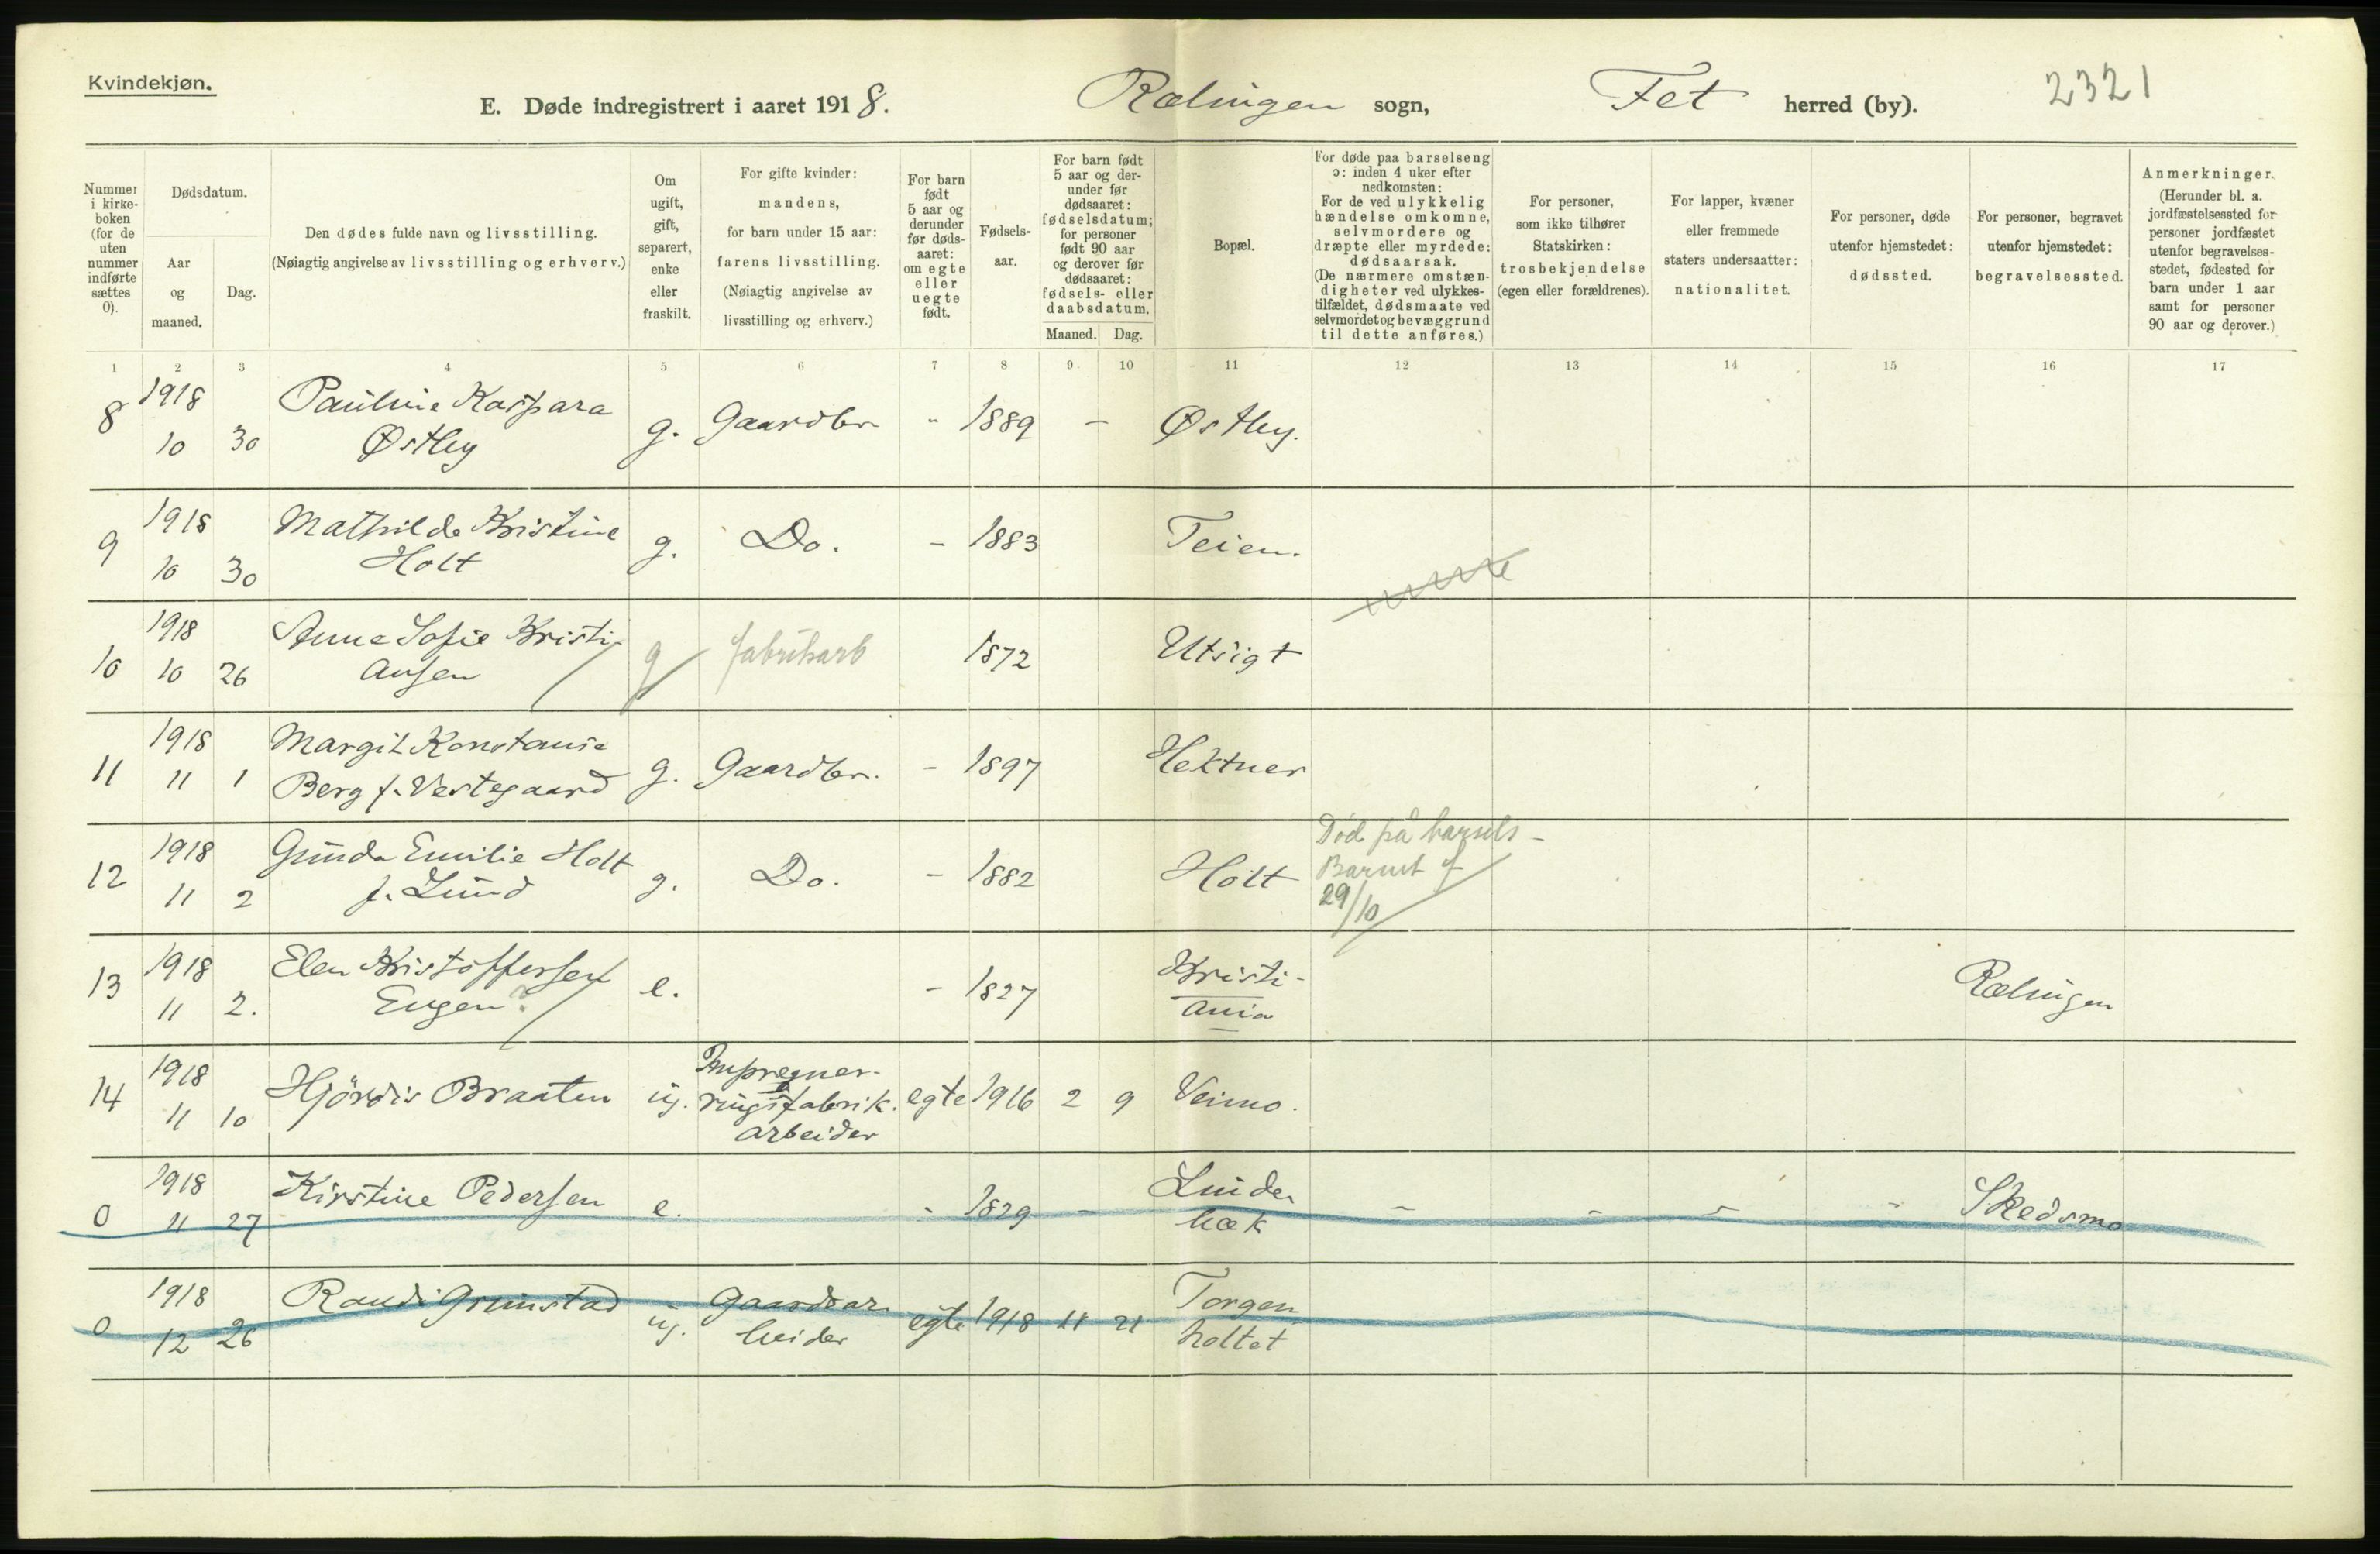 Kvindekjøn.
E. Døde indregistrert i aaret 1918. Rælingen sogn, Fet herred (by). 2321
Nummer i kirkeboken (for de uten nummer indførte sættes 0).
Dødsdatum.
Aar og maaned.
Dag.
Den dødes fulde navn og livsstilling.
(Nøiagtig angivelse av livsstilling og erhverv.)
Om ugift, gift, separert, enke eller fraskilt.
For gifte kvinder: mandens, for barn under 15 aar: farens livsstilling. (Nøiagtig angivelse av livsstilling og erhverv.)
For barn født 5 aar og derunder før dødsaaret: om egte eller uegte født.
Fødselsaar.
For barn født 5 aar og derunder før dødsaaret: fødselsdatum; for personer født 90 aar og derover før dødsaaret: fødsels- eller daabsdatum.
Maaned. Dag.
Bopæl.
For døde paa barselseng ɔ: inden 4 uker efter nedkomsten: For de ved ulykkelig hændelse omkomne, selvmordere og dræpte eller myrdede: dødsaarsak. (De nærmere omstændigheter ved ulykkestilfældet, dødsmaate ved selvmordet og bevæggrund til dette anføres.)
For personer, som ikke tilhører Statskirken: trosbekjendelse (egen eller forældrenes).
For lapper, kvæner eller fremmede staters undersaatter: nationalitet.
For personer, døde utenfor hjemstedet: dødssted.
For personer, begravet utenfor hjemstedet: begravelsessted.
Anmerkninger. (Herunder bl. a. jordfæstelsessted for personer jordfæstet utenfor begravelsesstedet, fødested for barn under 1 aar samt for personer 90 aar og derover.)
1 2 3 4 5 6 7 8 9 10 11 12 13 14 15 16 17
8 1918 10 30 Pauline Kaspara Østby g. Gaardbr. - 1889 - Østby.
9 1918 10 30 Mathilde Kristine Holt g. Do. - 1883 Teien.
10 1918 10 26 Anne Sofie Kristiansen g fabrikarb 1872 Utsigt
11 1918 11 1 Margit Konstanse Berg f. Vestegaard g. Gaardbr. - 1897 Hektner
12 1918 11 2 Gunda Emilie Holt f. Lund g. Do. - 1882 Holt Død på barsels- Barnet f 29/10
13 1918 11 2. Elen Kristoffersen Eugen? e. - 1827 Kristiania Rælingen
14 1918 11 10 Hjördis Braaten ug. Impregneringsfabrik.arbeider egte 1916 2 9 Veimo.
0 1918 11 27 Kirstine Pedersen e. - 1829 - Lundebæk - - - - Skedsmo
0 1918 12 26 Randi Grimstad ug. Gaardsarbeider egte 1918 11 21 Torgenholtet